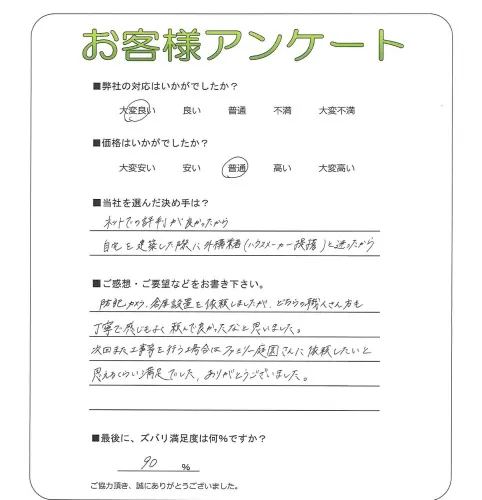 お客様アンケート
■弊社の対応はいかがでしたか？
大変良い 良い 普通 不満 大変不満
■価格はいかがでしたか？
大変安い 安い 普通 高い 大変高い
■当社を選んだ決め手は？
ネットでの評判が良かったから
自宅を建築した際に外構業者(ハウスメーカー提携)と迷ったから
■ご感想・ご要望などをお書き下さい。
防犯カメラ、倉庫設置を依頼しましたが、どちらの職人さん方も
丁寧で感じもよく頼んで良かったなと思いました。
次回また工事等を行う場合はファミリー庭園さんに依頼したいと
思えるくらい満足でした。ありがとうございました。
■最後に、ズバリ満足度は何%ですか？
90 %
ご協力頂き、誠にありがとうございました。